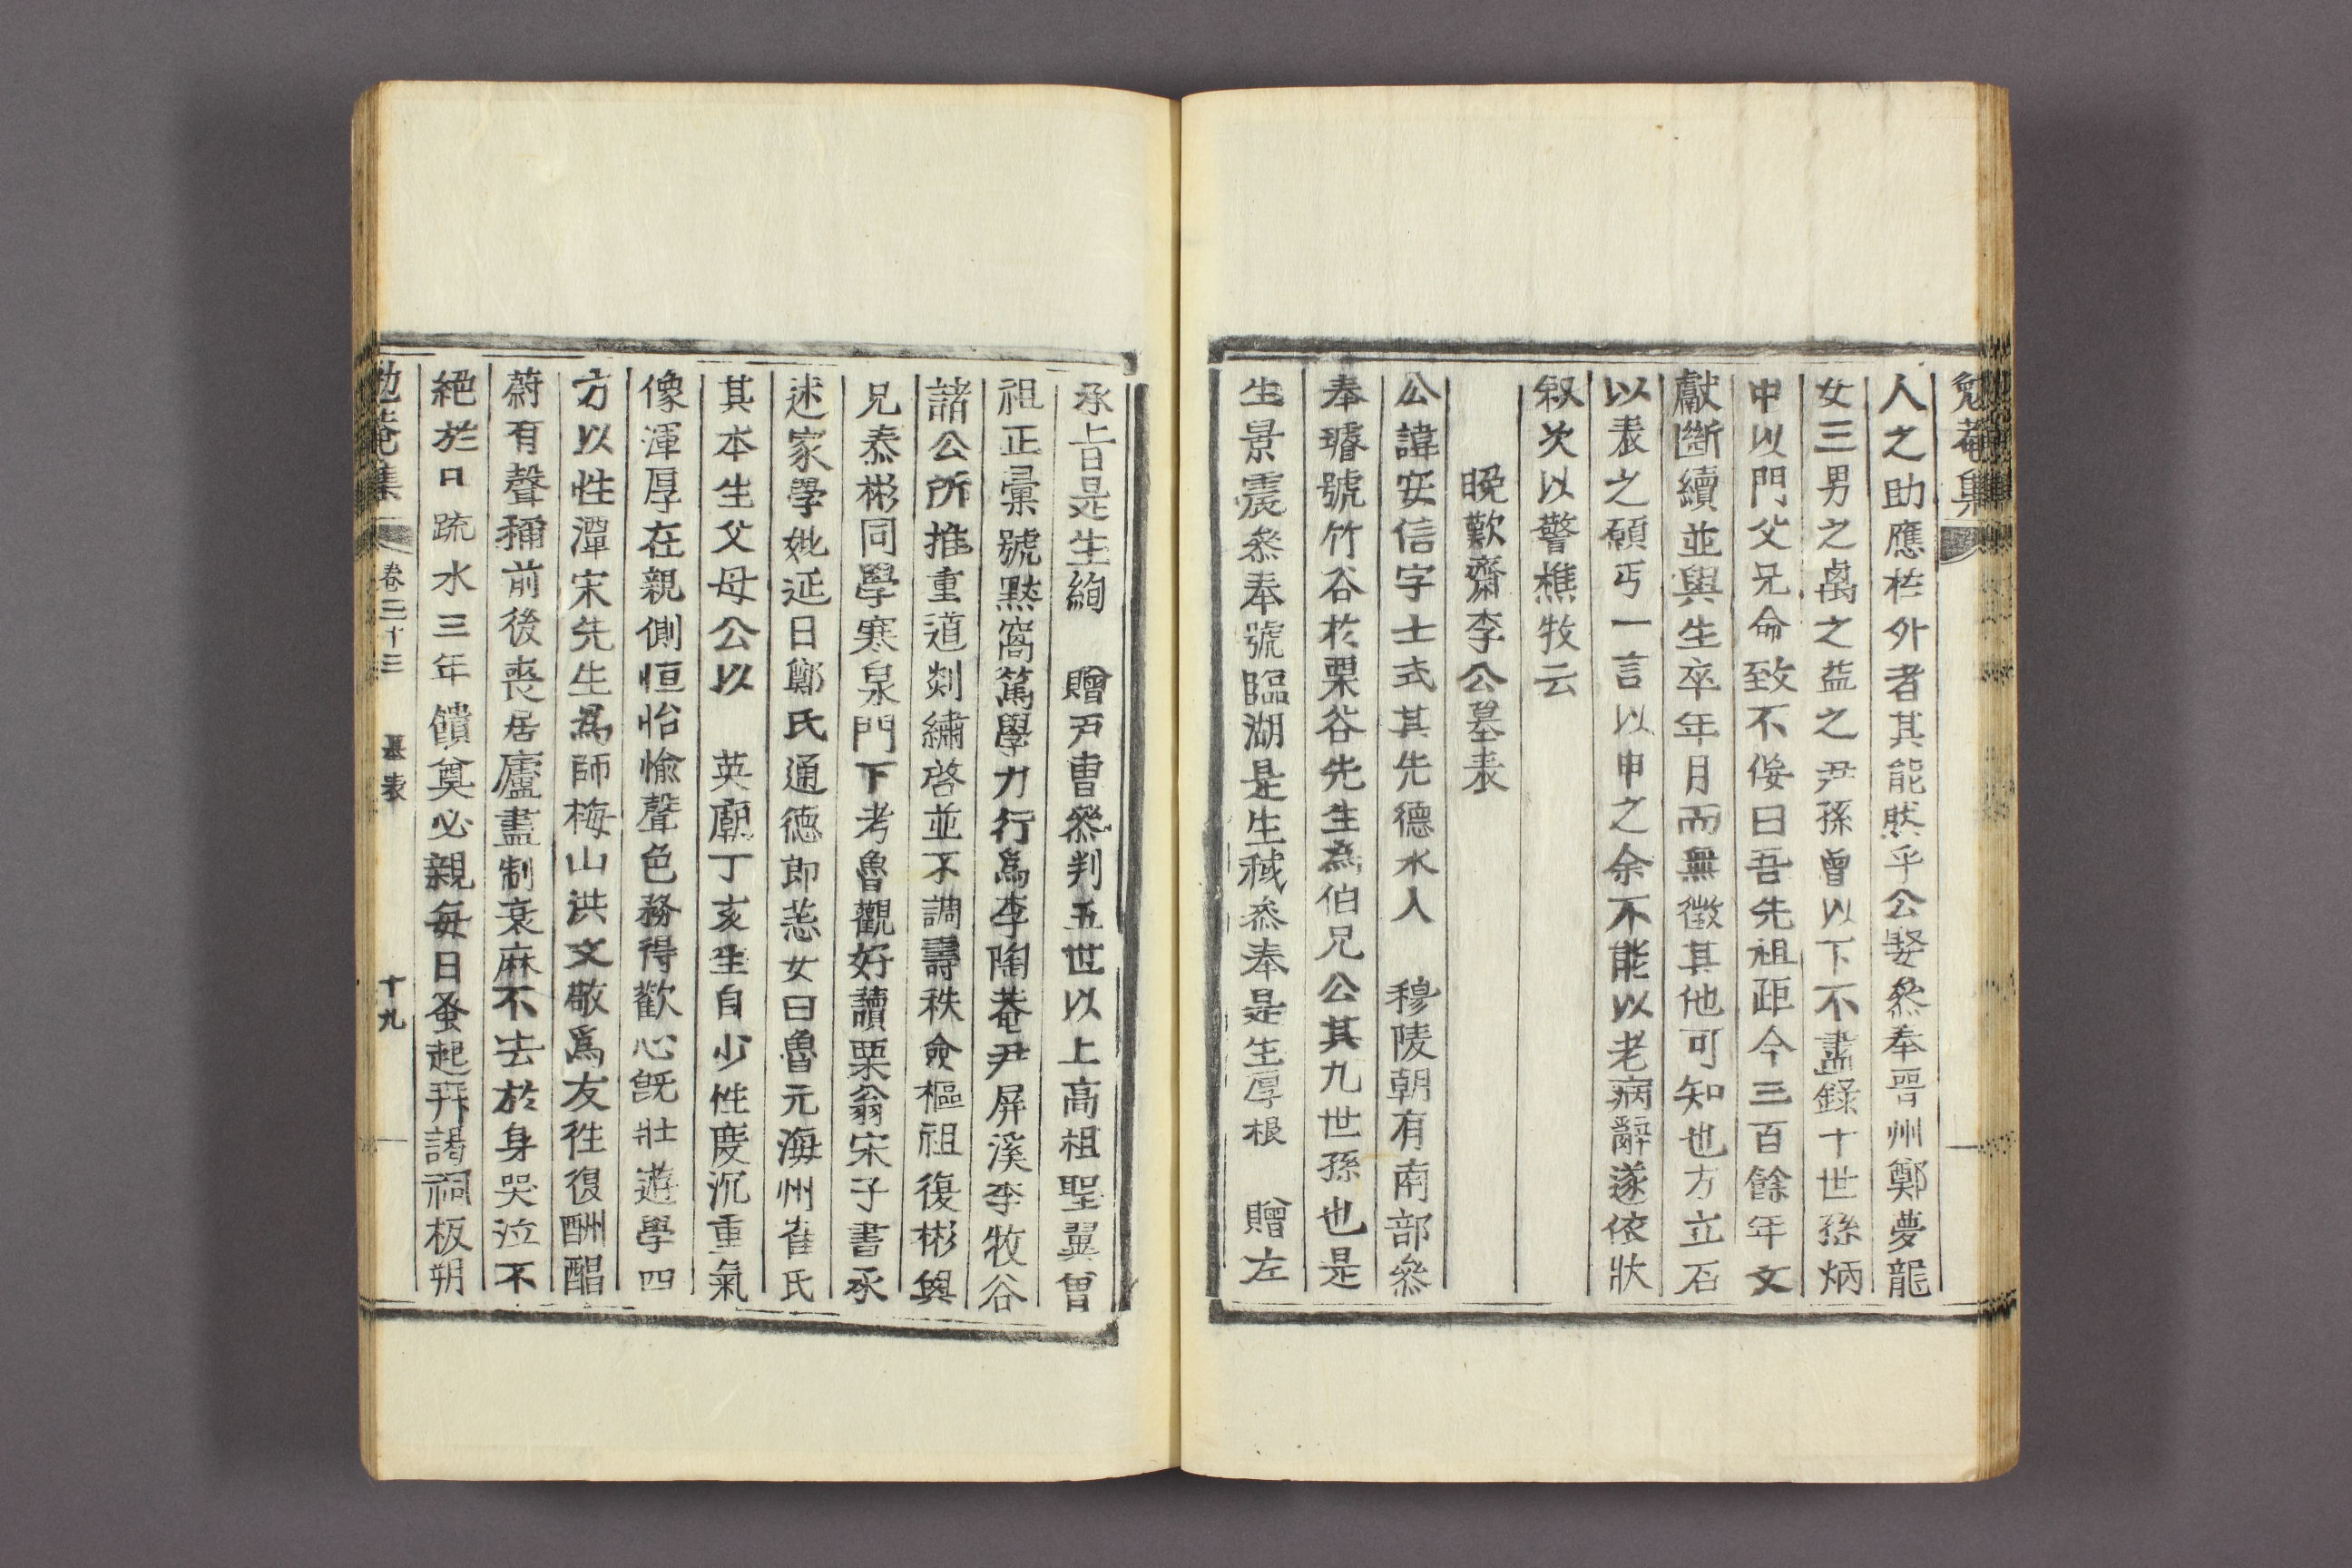 勉菴集
人之助應在外者其能然乎公娶叅奉晋州鄭夢龍
女三男之禼之益之尹孫曾以下不盡錄十世孫炳
申以門父兄命致不佞曰吾先祖距今三百餘年文
獻斷續並與生卒年月而無徵其他可知也方立石
以表之願丐一言以申之余不能以老病辭遂依狀
叙次以警樵牧云
晚歎齋李公墓表
公諱安信字士式其先德水人 穆陵朝有南部叅
奉璿號竹谷於栗谷先生爲伯兄公其九世孫也是
生景震叅奉號臨湖是生稶叅奉是生厚根 贈左
承旨是生絢 贈戸曹叅判五世以上高祖聖翼曾
祖正彙號默窩篤學力行爲李陶菴尹屛溪李牧谷
諸公所推重道剡繡啓並不調壽秩僉樞祖復彬與
兄泰彬同學寒泉門下考魯觀好讀栗翁宋子書承
述家學妣延日鄭氏通德郎恙女曰魯元海州崔氏
其本生父母公以 英廟丁亥生自少性度沉重氣
像渾厚在親側恒怡愉聲色務得歡心旣壯遊學四
方以性潭宋先生爲師梅山洪文敬爲友往復酬酢
蔚有聲稱前後喪居廬盡制衰麻不去於身哭泣不
絕於口疏水三年饋奠必親每日蚤起拜謁祠板朔
勉菴集 卷三十三 墓表 十九